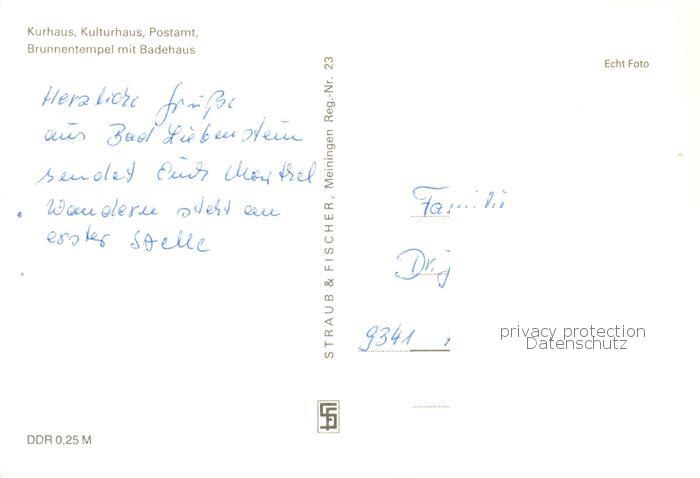 Kurhaus, Kulturhaus, Postamt,
Brunnentempel mit Badehaus
Echt Foto
Herzliche Grüße
aus Bad Liebenstein
sendet Euch
Wandern steht an
erster Stelle
STRAUB & FISCHER, Meiningen Reg.-Nr. 23
Familie
9341
privacy protection
Datenschutz
DDR 0,25 M